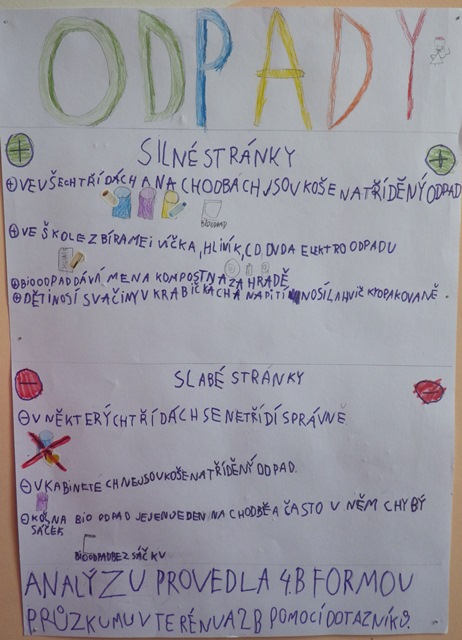 ODPADY
SILNÉ STRÁNKY
VE VŠECH TŘÍDÁCH A NA CHODBÁCH JSOU KOŠE NA TŘÍDĚNÝ ODPAD
BIOODPAD
VE ŠKOLE ZBÍRAME I VÍČKA, HLINÍK, CD, DVD A ELEKTRO ODPADU
BIOODPAD DÁVÍME NA KOMPOST NA ZAHRADĚ
DĚTI NOSÍ SVAČINY V KRABIČKÁCH A NA PITÍ NOSÍ LAHVIČKY OPAKOVANĚ
SLABÉ STRÁNKY
V NĚKTERÝCH TŘÍDÁCH SE NETŘÍDÍ SPRÁVNĚ
V KABINETECH NEJSOU KOŠE NA TŘÍDĚNÝ ODPAD.
KOŠ NA BIO ODPAD JE JEN JEDEN NA CHODBĚ A ČASTO V NĚM CHYBÝ
SÁČEK
BIOODPAD BEZ SÁČKU
ANALÝZU PROVEDLA 4.B FORMOU
PRŮZKUMU V TERÉNU A 2B POMOCÍ DOTAZNÍKŮ.